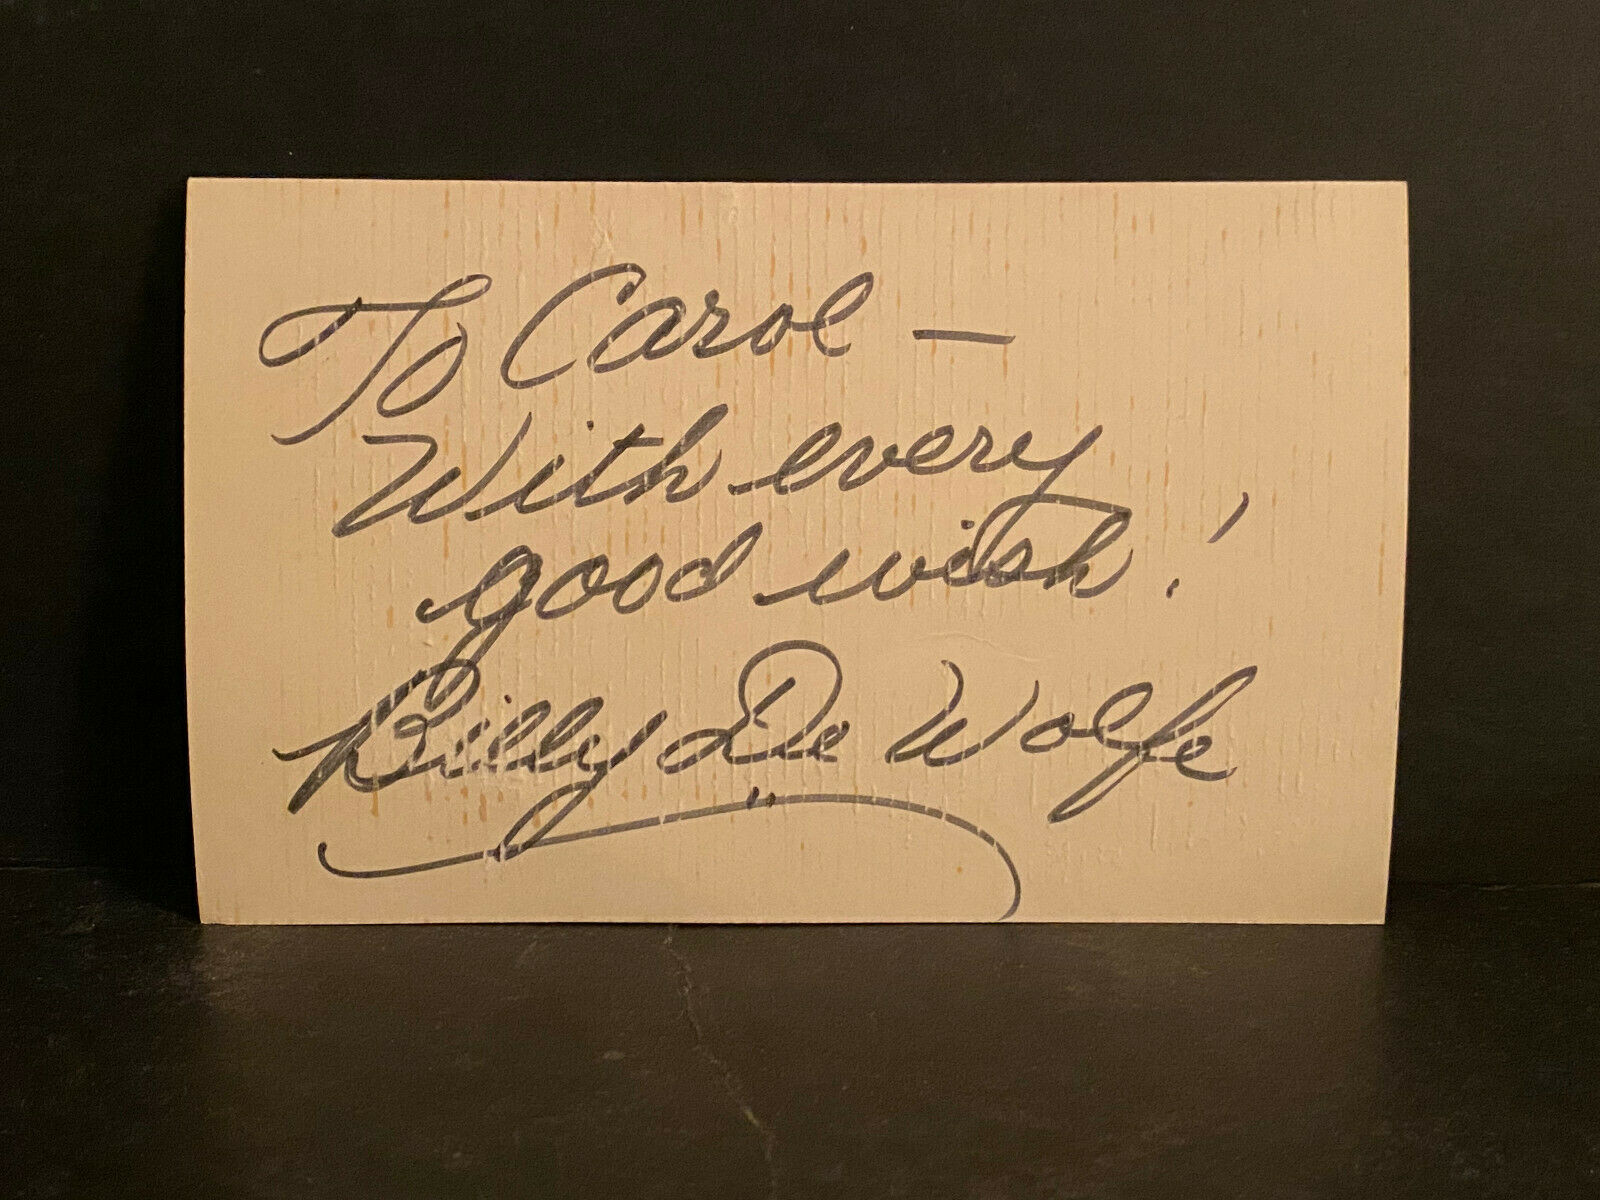 To Carol —
With every
good wish!
Billy De Wolfe